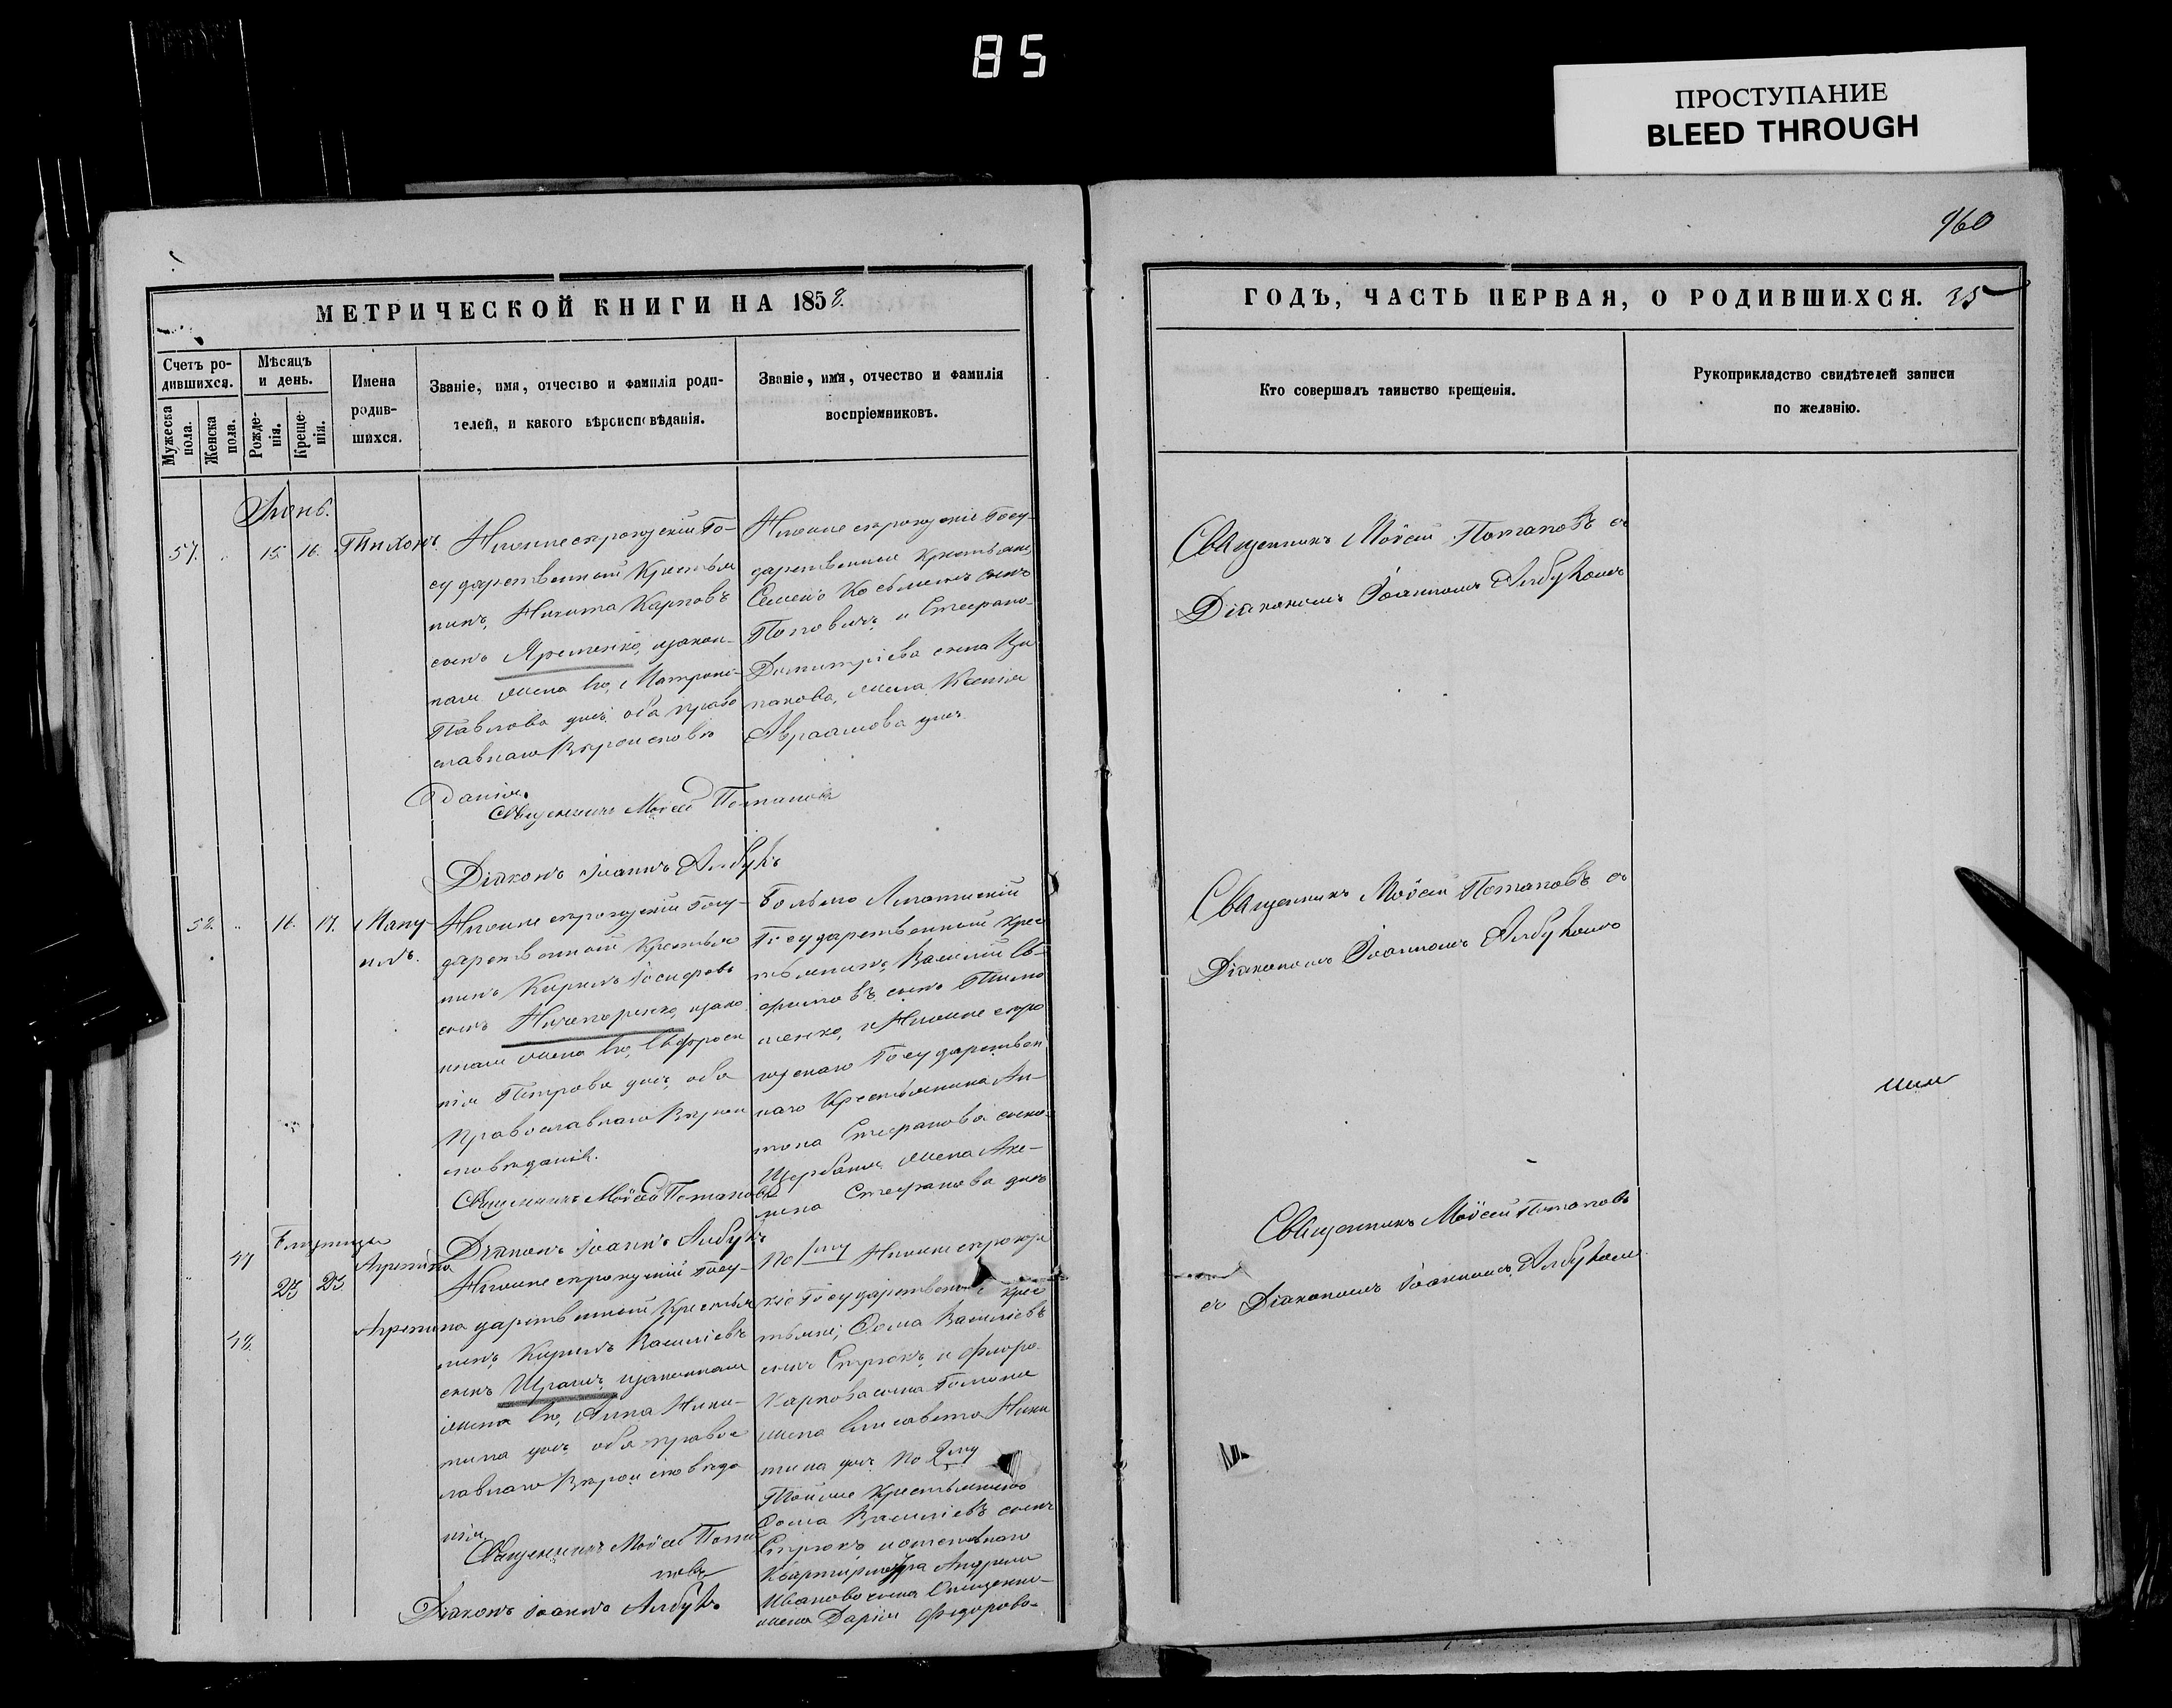 85
ПРОСТУПАНИЕ
BLEED THROUGH
960
МЕТРИЧЕСКОЙ КНИГИ НА 1858.
Счетъ ро-
дившихся.
Мужеска
пола.
Женска
пола.
Мѣсяцъ
и день.
Рожде-
нія.
Креще-
нія.
Имена
родив-
шихся.
Званіе, имя, отчество и фамилія роди-
телей, и какого вѣроисповѣданія.
Званіе, имя, отчество и фамилія
воспріемниковъ.
Іюнь.
57. 15 16. Тихонъ
Нижнесѣрогозскій Го-
сударственный Крестья
нинъ, Никита Карповъ
сынъ Яременко, и закон-
ная жена его, Матрона
Павлова дочь, оба право
славнаго Вѣроисповѣ
данія.
Священникъ Моѵсей Потаповъ
Діаконъ Іоаннъ
Нижнесѣрогозскіе Госу-
дарственный Крестьянинъ
Семенъ Косьминъ сынъ
Поповичъ, и Стефана
Димитріева сына
жена Ксенія
Авраамова дочь
58. 16. 17.Ману-
илъ.
Нижнесѣрогозскій Госу-
дарственный Крестья
нинъ Кирилъ Іосифовъ
сынъ Ничипоренко, и зако
нная жена его, Евфроси
нія Петрова дочь, оба
Православнаго Вѣрои
сповѣданія.
Священникъ Моѵсей Потаповъ
Діаконъ Іоаннъ
Больше
Государственный Крес
тьянинъ, Василій Ев-
фимовъ сынъ Тимо
шенко, и Нижнесѣро
гозскаго Государствен
наго Крестьянина Ан-
тона Стефанова сына
Щербаня жена Аке-
лина Стефанова дочь
Близнецы
47 23 23. Агрепина
48. Агрепина
Нижнесѣрогозскій Госу-
дарственный Крестья
нинъ, Кирилъ Василіевъ
сынъ и законная
жена его, Анна Ники-
тина дочь, оба правос
лавнаго Вѣроисповѣда
нія
Священникъ Моѵсей Пота
повъ
Діаконъ Іоаннъ
По 1му Нижнесѣрогоз
кіе Государственные Крес
тьяне; Ѳома Василіевъ
сынъ и Флора
Карпова сына
жена Елисавета Ники
тина дочь. По 2му
Тойже Крестьянинъ
Ѳома Василіевъ сынъ
Квартирмистра Андрея
Иванова сына
жена Дарія Федорова
ГОДЪ, ЧАСТЬ ПЕРВАЯ, О РОДИВШИХСЯ. 35
Кто совершалъ таинство крещенія.
Рукоприкладство свидѣтелей записи
по желанію.
Священникъ Моѵсей Потаповъ съ
Діакономъ Іоанномъ
Священникъ Моѵсей Потаповъ съ
Діакономъ Іоанномъ
Священникъ Моѵсей Потаповъ
съ Діакономъ Іоанномъ